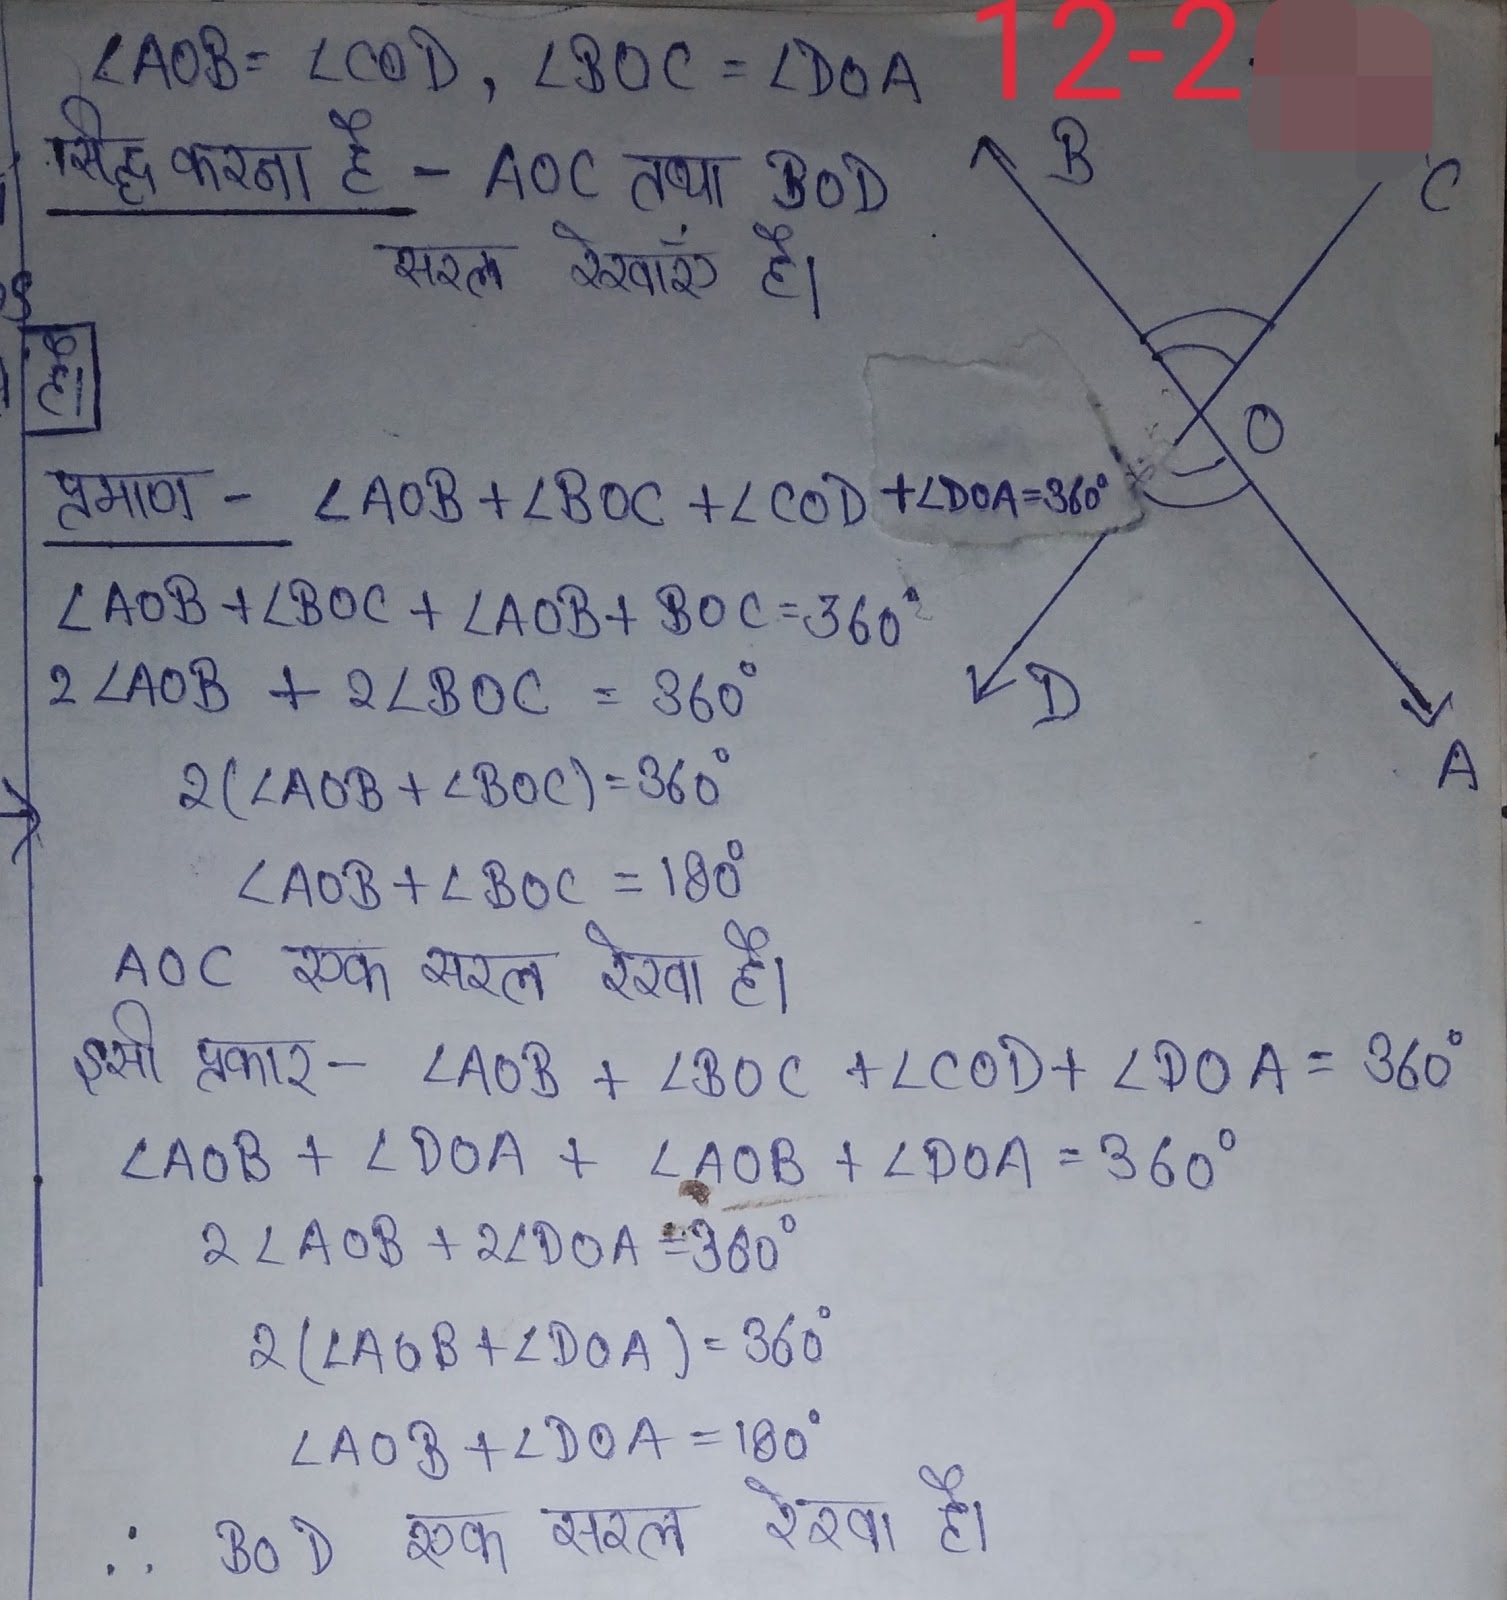 ∠AOB = ∠COD, ∠BOC = ∠DOA
12-2
सिद्ध करना है - AOC तथा BOD
सरल रेखाएँ है।
B
C
O
D
A
है।
प्रमाण - ∠AOB + ∠BOC + ∠COD + ∠DOA = 360°
∠AOB + ∠BOC + ∠AOB + BOC = 360°
2∠AOB + 2∠BOC = 360°
2(∠AOB + ∠BOC) = 360°
∠AOB + ∠BOC = 180°
AOC एक सरल रेखा है।
इसी प्रकार - ∠AOB + ∠BOC + ∠COD + ∠DOA = 360°
∠AOB + ∠DOA + ∠AOB + ∠DOA = 360°
2∠AOB + 2∠DOA = 360°
2(∠AOB + ∠DOA) = 360°
∠AOB + ∠DOA = 180°
∴ BOD एक सरल रेखा है।